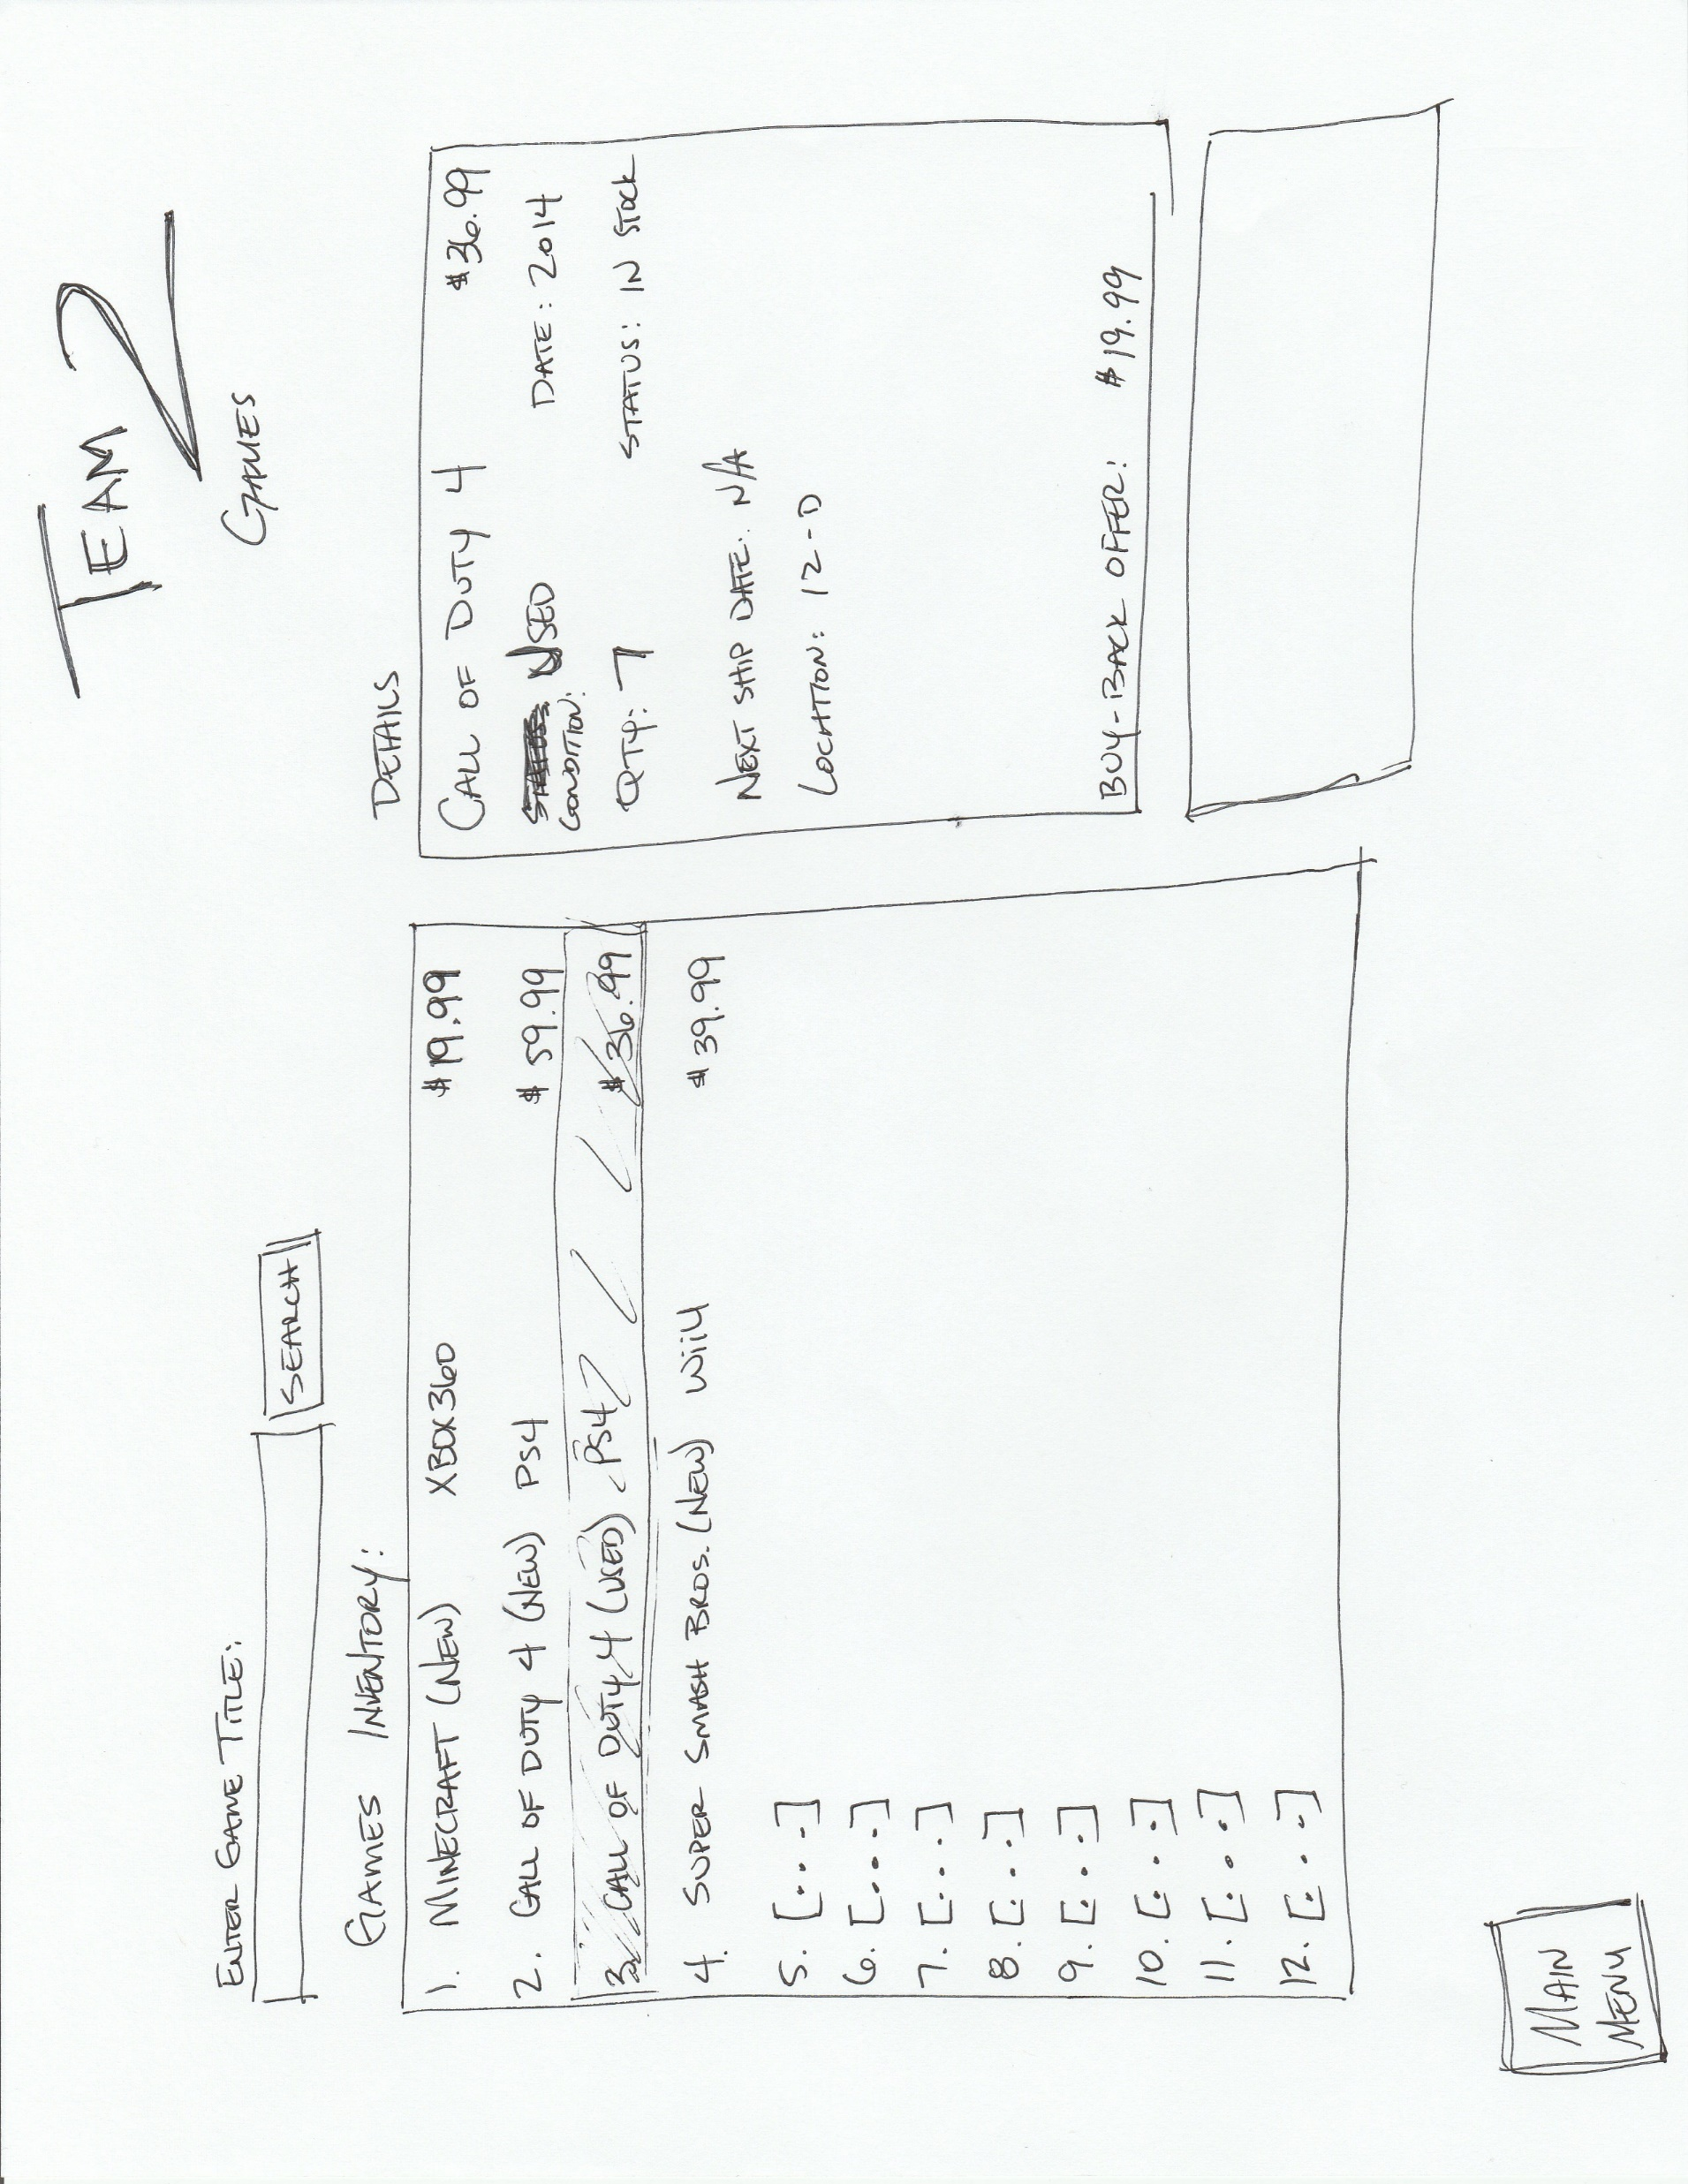 TEAM 2
GAMES
ENTER GAME TITLE:
SEARCH
GAMES INVENTORY:
1. MINECRAFT (NEW) XBOX360 $19.99
2. CALL OF DUTY 4 (NEW) PS4 $59.99
3. CALL OF DUTY 4 (USED) PS4 $36.99
4. SUPER SMASH BROS. (NEW) WiiU $39.99
5. [...]
6. [...]
7. [...]
8. [...]
9. [...]
10. [...]
11. [...]
12. [...]
DETAILS
CALL OF DUTY 4 $36.99
CONDITION: USED DATE: 2014
QTY: 7 STATUS: IN STOCK
NEXT SHIP DATE: N/A
LOCATION: 12-D
BUY-BACK OFFER: $19.99
MAIN
MENU